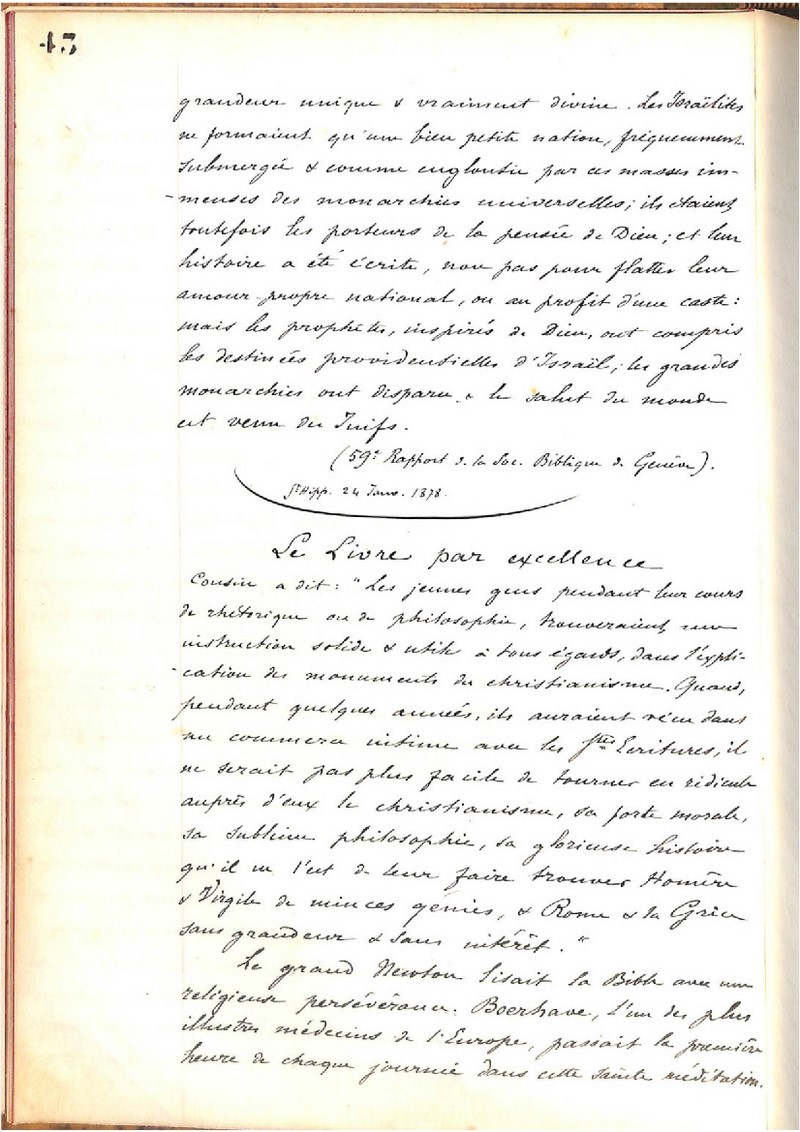 43
grandeur unique & vraiment divine. Les Israëlites
ne formaient qu'une bien petite nation, fréquemment
submergée & comme engloutie par ces masses im-
-menses des monarchies universelles; ils étaient
toutefois les porteurs de la pensée de Dieu; et leur
histoire a été écrite, non pas pour flatter leur
amour-propre national, ou au profit d'une caste:
mais les prophètes, inspirés de Dieu, ont compris
les destinées providentielles d'Israël; les grandes
monarchies ont disparu & le salut du monde
est venu des Juifs.
(59e Rapport de la Soc. Biblique de Genève).
St Hipp. 24 Janv. 1878.
Le Livre par excellence
Cousin a dit: "Les jeunes gens pendant leur cours
de rhétorique ou de philosophie, trouveraient une
instruction solide & utile à tous égards, dans l'expli-
-cation des monuments du christianisme. Quand,
pendant quelques années, ils auraient vécu dans
un commerce intime avec les Stes Ecritures, il
ne serait pas plus facile de tourner en ridicule
auprès d'eux le christianisme, sa forte morale,
sa sublime philosophie, sa glorieuse histoire
qu'il ne l'est de leur faire trouver Homère
& Virgile de minces génies, & Rome & la Grèce
sans grandeur & sans intérêt."
Le grand Newton lisait la Bible avec une
religieuse persévérance. Boerhave, l'un des plus
illustres médecins de l'Europe, passait la première
heure de chaque journée dans cette sainte méditation.